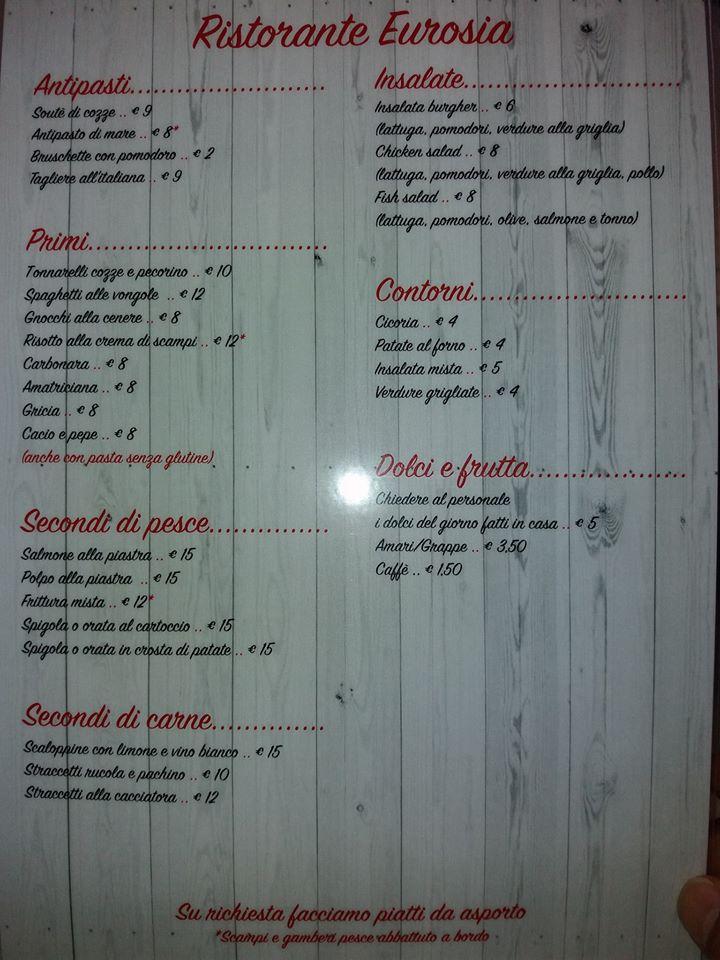 Ristorante Eurosia
Antipasti..........................
Soutè di cozze .. € 9
Antipasto di mare .. € 8*
Bruschette con pomodoro .. € 2
Tagliere all'italiana .. € 9
Primi................................
Tonnarelli cozze e pecorino .. € 10
Spaghetti alle vongole .. € 12
Gnocchi alla cenere .. € 8
Risotto alla crema di scampi .. € 12*
Carbonara .. € 8
Amatriciana .. € 8
Gricia .. € 8
Cacio e pepe .. € 8
(anche con pasta senza glutine)
Secondi di pesce................
Salmone alla piastra .. € 15
Polpo alla piastra .. € 15
Frittura mista .. € 12*
Spigola o orata al cartoccio .. € 15
Spigola o orata in crosta di patate .. € 15
Secondi di carne...............
Scaloppine con limone e vino bianco .. € 15
Straccetti rucola e pachino .. € 10
Straccetti alla cacciatora .. € 12
Insalate.............................
Insalata burgher .. € 6
(lattuga, pomodori, verdure alla griglia)
Chicken salad .. € 8
(lattuga, pomodori, verdure alla griglia, pollo)
Fish salad .. € 8
(lattuga, pomodori, olive, salmone e tonno)
Contorni............................
Cicoria .. € 4
Patate al forno .. € 4
Insalata mista .. € 5
Verdure grigliate .. € 4
Dolci e frutta.....................
Chiedere al personale
i dolci del giorno fatti in casa .. € 5
Amari/Grappe .. € 3,50
Caffè .. € 1,50
Su richiesta facciamo piatti da asporto
*Scampi e gamberi pesce abbattuto a bordo